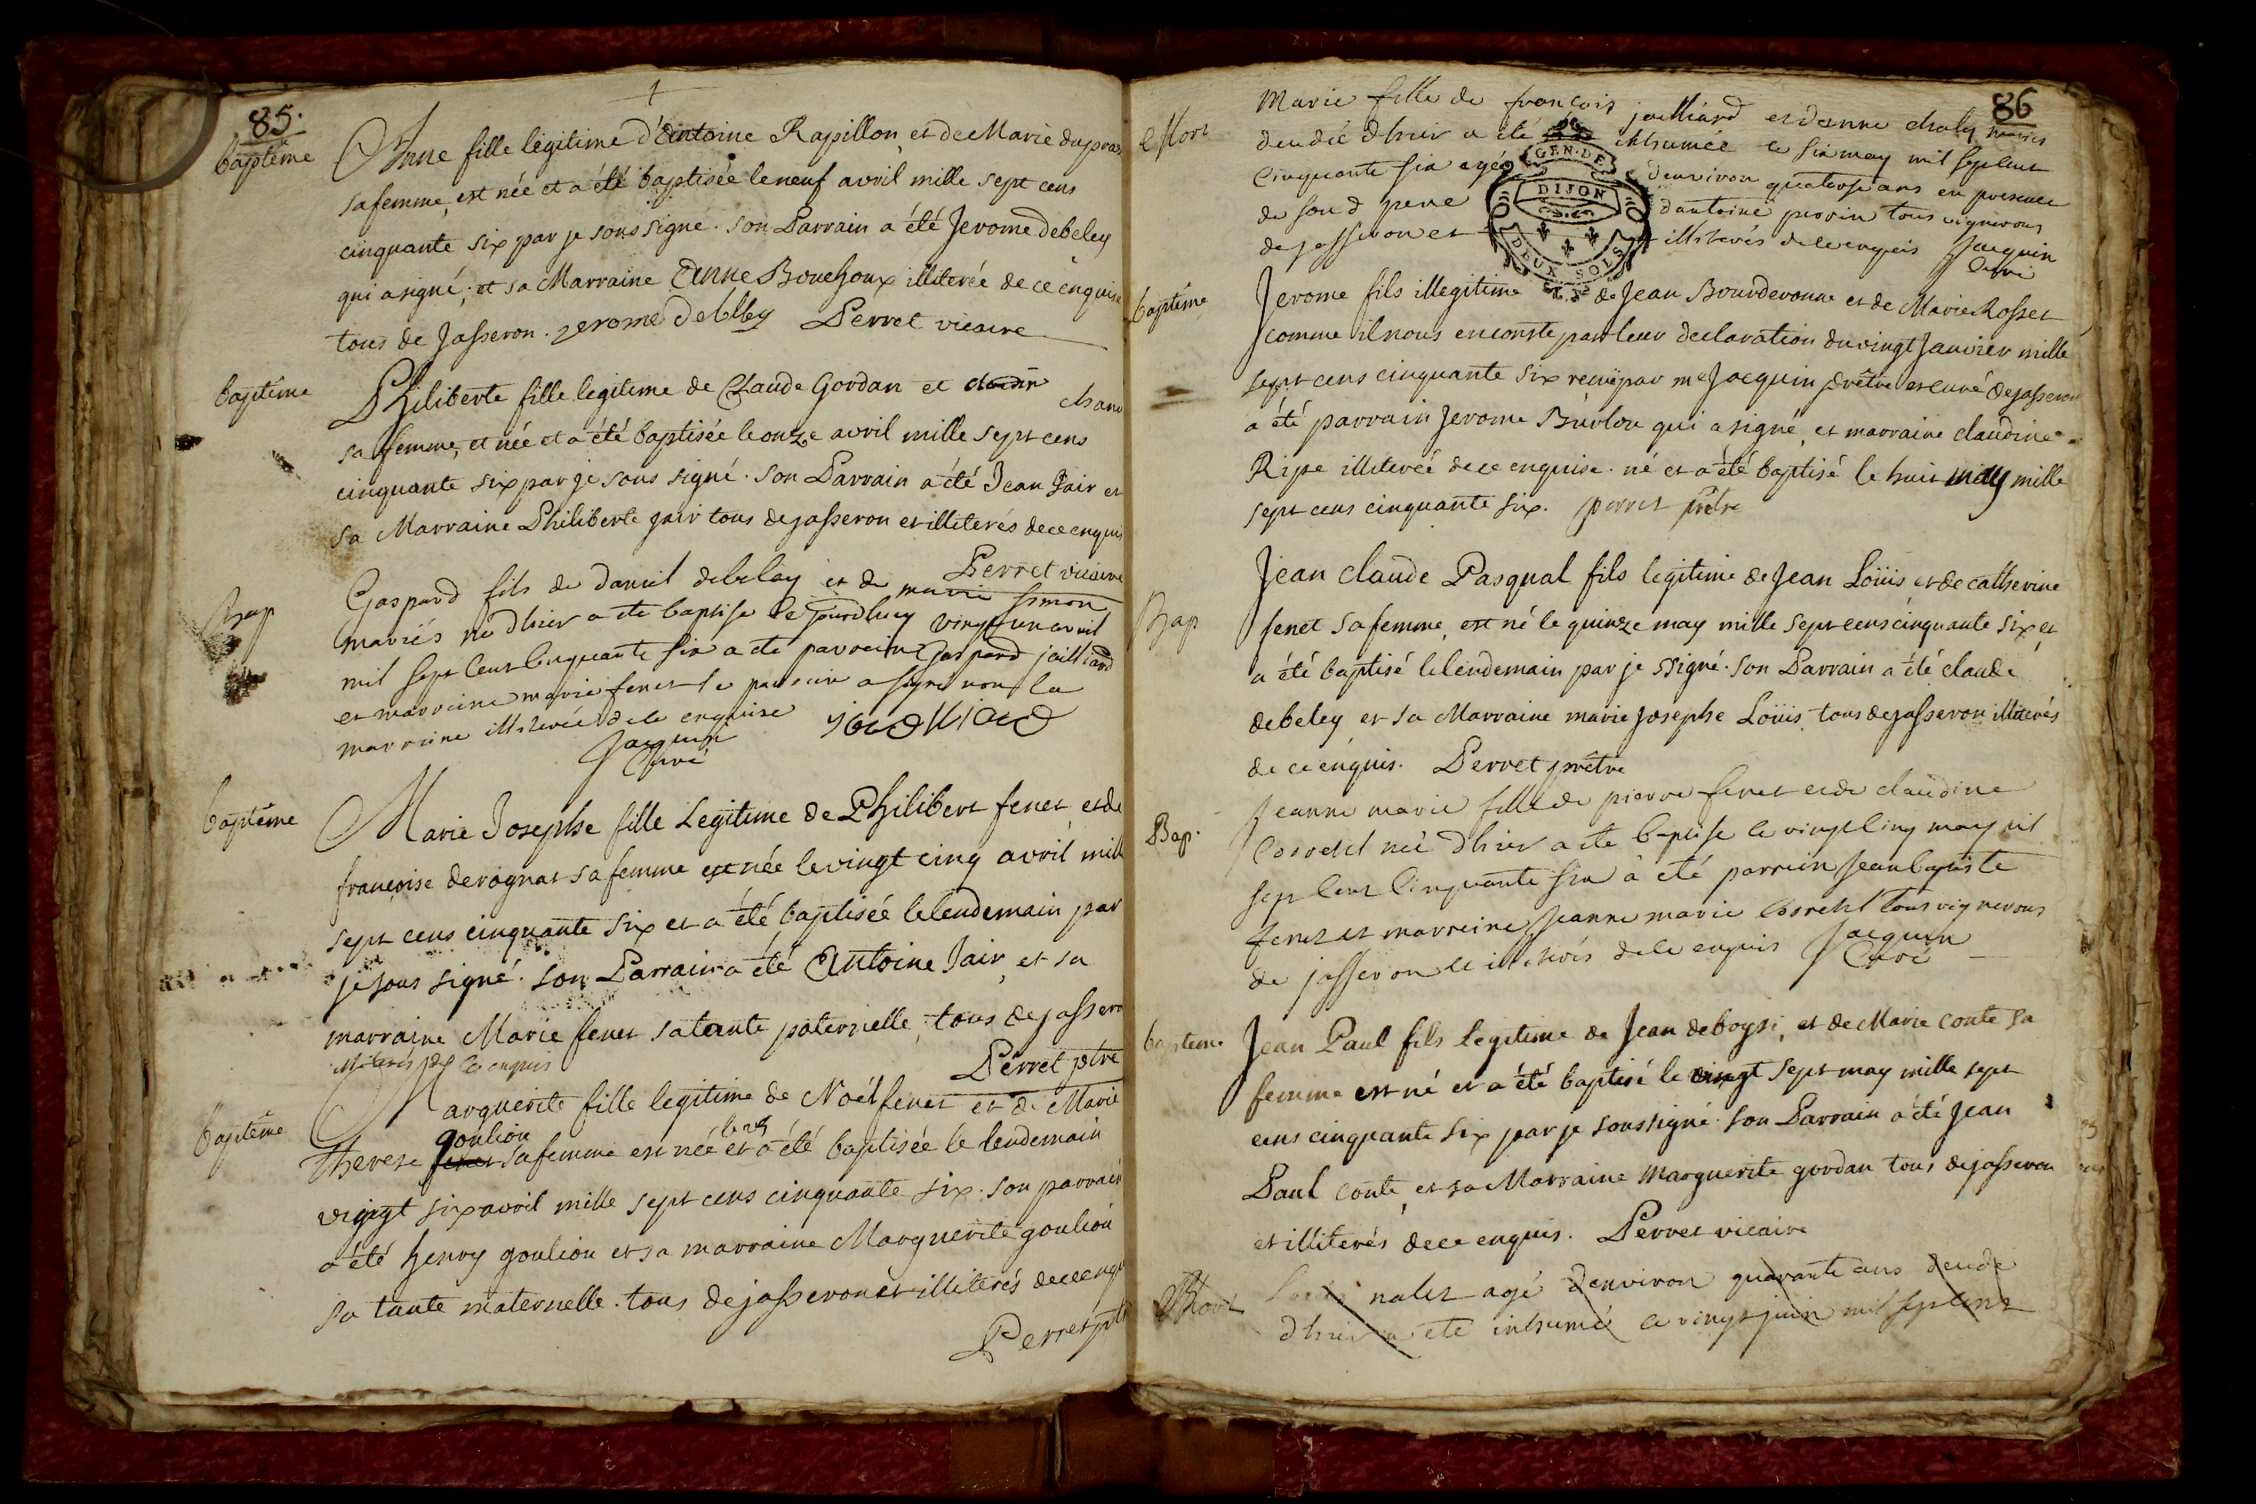 85.
baptême
Anne fille legitime d'Antoine Rapillon, et de Marie dupras
sa femme, est née et a été baptisée le neuf avril mille sept cens
cinquante six par je sous signé. son Parrain a été Jerome debeley
qui a signé; et sa Marraine Anne Bouchoux illiterée de ce enquise
tous de Jasseron. jerome debeley Perret vicaire
baptême
Philiberte fille legitime de Claude Gordan et
sa femme, et née et a été baptisée le onze avril mille sept cens
cinquante six par je sous signé. son Parrain a été Jean Jair et
sa Marraine Philiberte jair tous de jasseron et illiterés de ce enquis
Perret vicaire
Bap
Gaspard fils de daniel debeley et de marie simon
mariés né dhier a ete baptise le jourdhuy vingt un avril
mil sept cent cinquante six a ete parrein Gaspard jailliard
et marreine marie fenet le parrein a signé non la
marreine illiterée de ce enquise jacdlliacd
Jacquin
Curé
baptême
Marie Josephe fille Legitime de Philibert fenet, et de
françoise derognat sa femme est née le vingt cinq avril mille
sept cens cinquante six et a été baptisée le lendemain par
je sous signé. son Parrain a été Antoine Jair, et sa
marraine Marie fenet sa tante paternelle, tous de jasseron
illiterés de ce enquis Perret ptre
baptême
Marguerite fille legitime de Noël fenet et de Marie
goulion
Therese fenet sa femme est née et a été baptisée le lendemain
vingt six avril mille sept cens cinquante six. son parrain
a été henry goulion et sa marraine Marguerite goulion
sa tante maternelle. tous de jasseron et illiterés de ce enquis
Perret ptre
86
Mort
Marie fille de francois jailliard et danne chaley mariés
decedée dhier a été inhumée le six may mil sept cent
cinquante six agée denviron quatorse ans en presence
de son d pere dantoine provin tous vignerons
de jasseron et illiterés de ce enquis Jacquin
Curé
GEN. DE
DIJON
DEUX SOLS
baptême
Jerome fils illegitime de Jean Bourderonne et de Marie Rosset
comme il nous en conste par leur declaration du vingt Janvier mille
sept cens cinquante six recüe par me Jacquin prêtre et curé de jasseron
a été parrain Jerome Burlon qui a signé, et marraine claudine
Ripe illiterée de ce enquise. né et a été baptisé le huit may mille
sept cens cinquante six. perret prêtre
Bap
Jean claude Pasqual fils legitime de Jean Loüis et de catherine
fenet sa femme, est né le quinze may mille sept cens cinquante six et
a été baptisé le lendemain par je ssigné. son Parrain a été claude
debeley et sa Marraine marie josephe Loüis tous de jasseron illiterés
de ce enquis. Perret prêtre
Bap.
Jeanne marie fille de pierre fenet et de claudine
née dhier a ete baptise le vingt cinq may mil
sept cent cinquante six a été parrein jean baptiste
fenet et marreine Jeanne marie tous vignerons
de jasseron et illiterés de ce enquis Jacquin
Curé
baptême
Jean Paul fils legitime de Jean deboysi, et de Marie conte sa
femme est né et a été baptisé le vingt sept may mille sept
cens cinquante six par je soussigné. son Parrain a été Jean
Paul conte, et sa Marraine Marguerite gordan tous de jasseron
et illiterés de ce enquis. Perret vicaire
Mort
nalet agé denviron quarante ans decede
dhier a ete inhumé le vingt juin mil sept cent